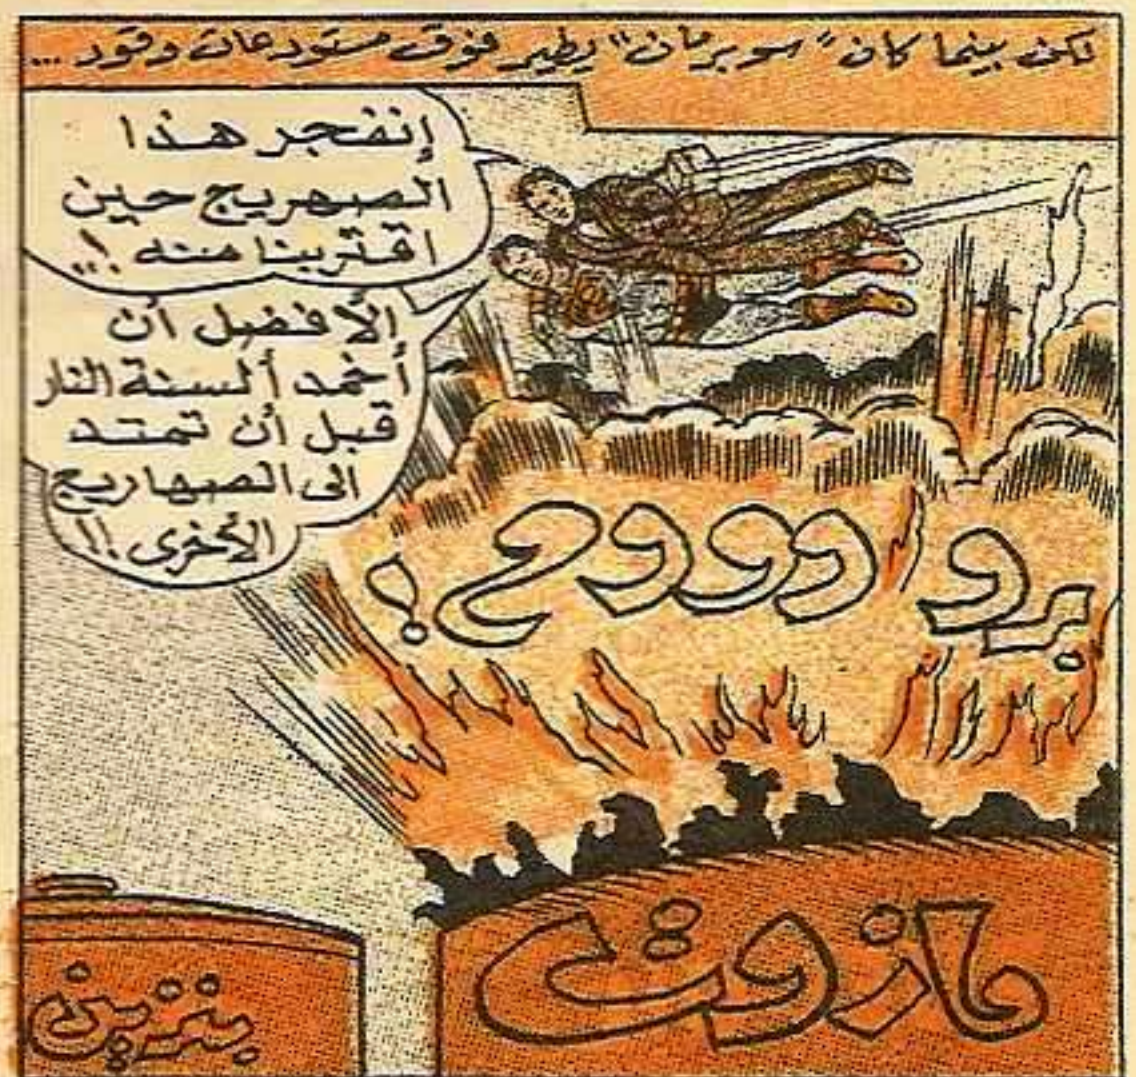 لكن بينما كان "سوبرمان" يطير فوق مستودعات وقود ...
إنفجر هذا
الصهريج حين
اقتربنا منه !..
الأفضل أن
أخمد ألسنة النار
قبل أن تمتد
الى الصهاريج
الأخرى !!
برووووم !
مازوت
بنزين